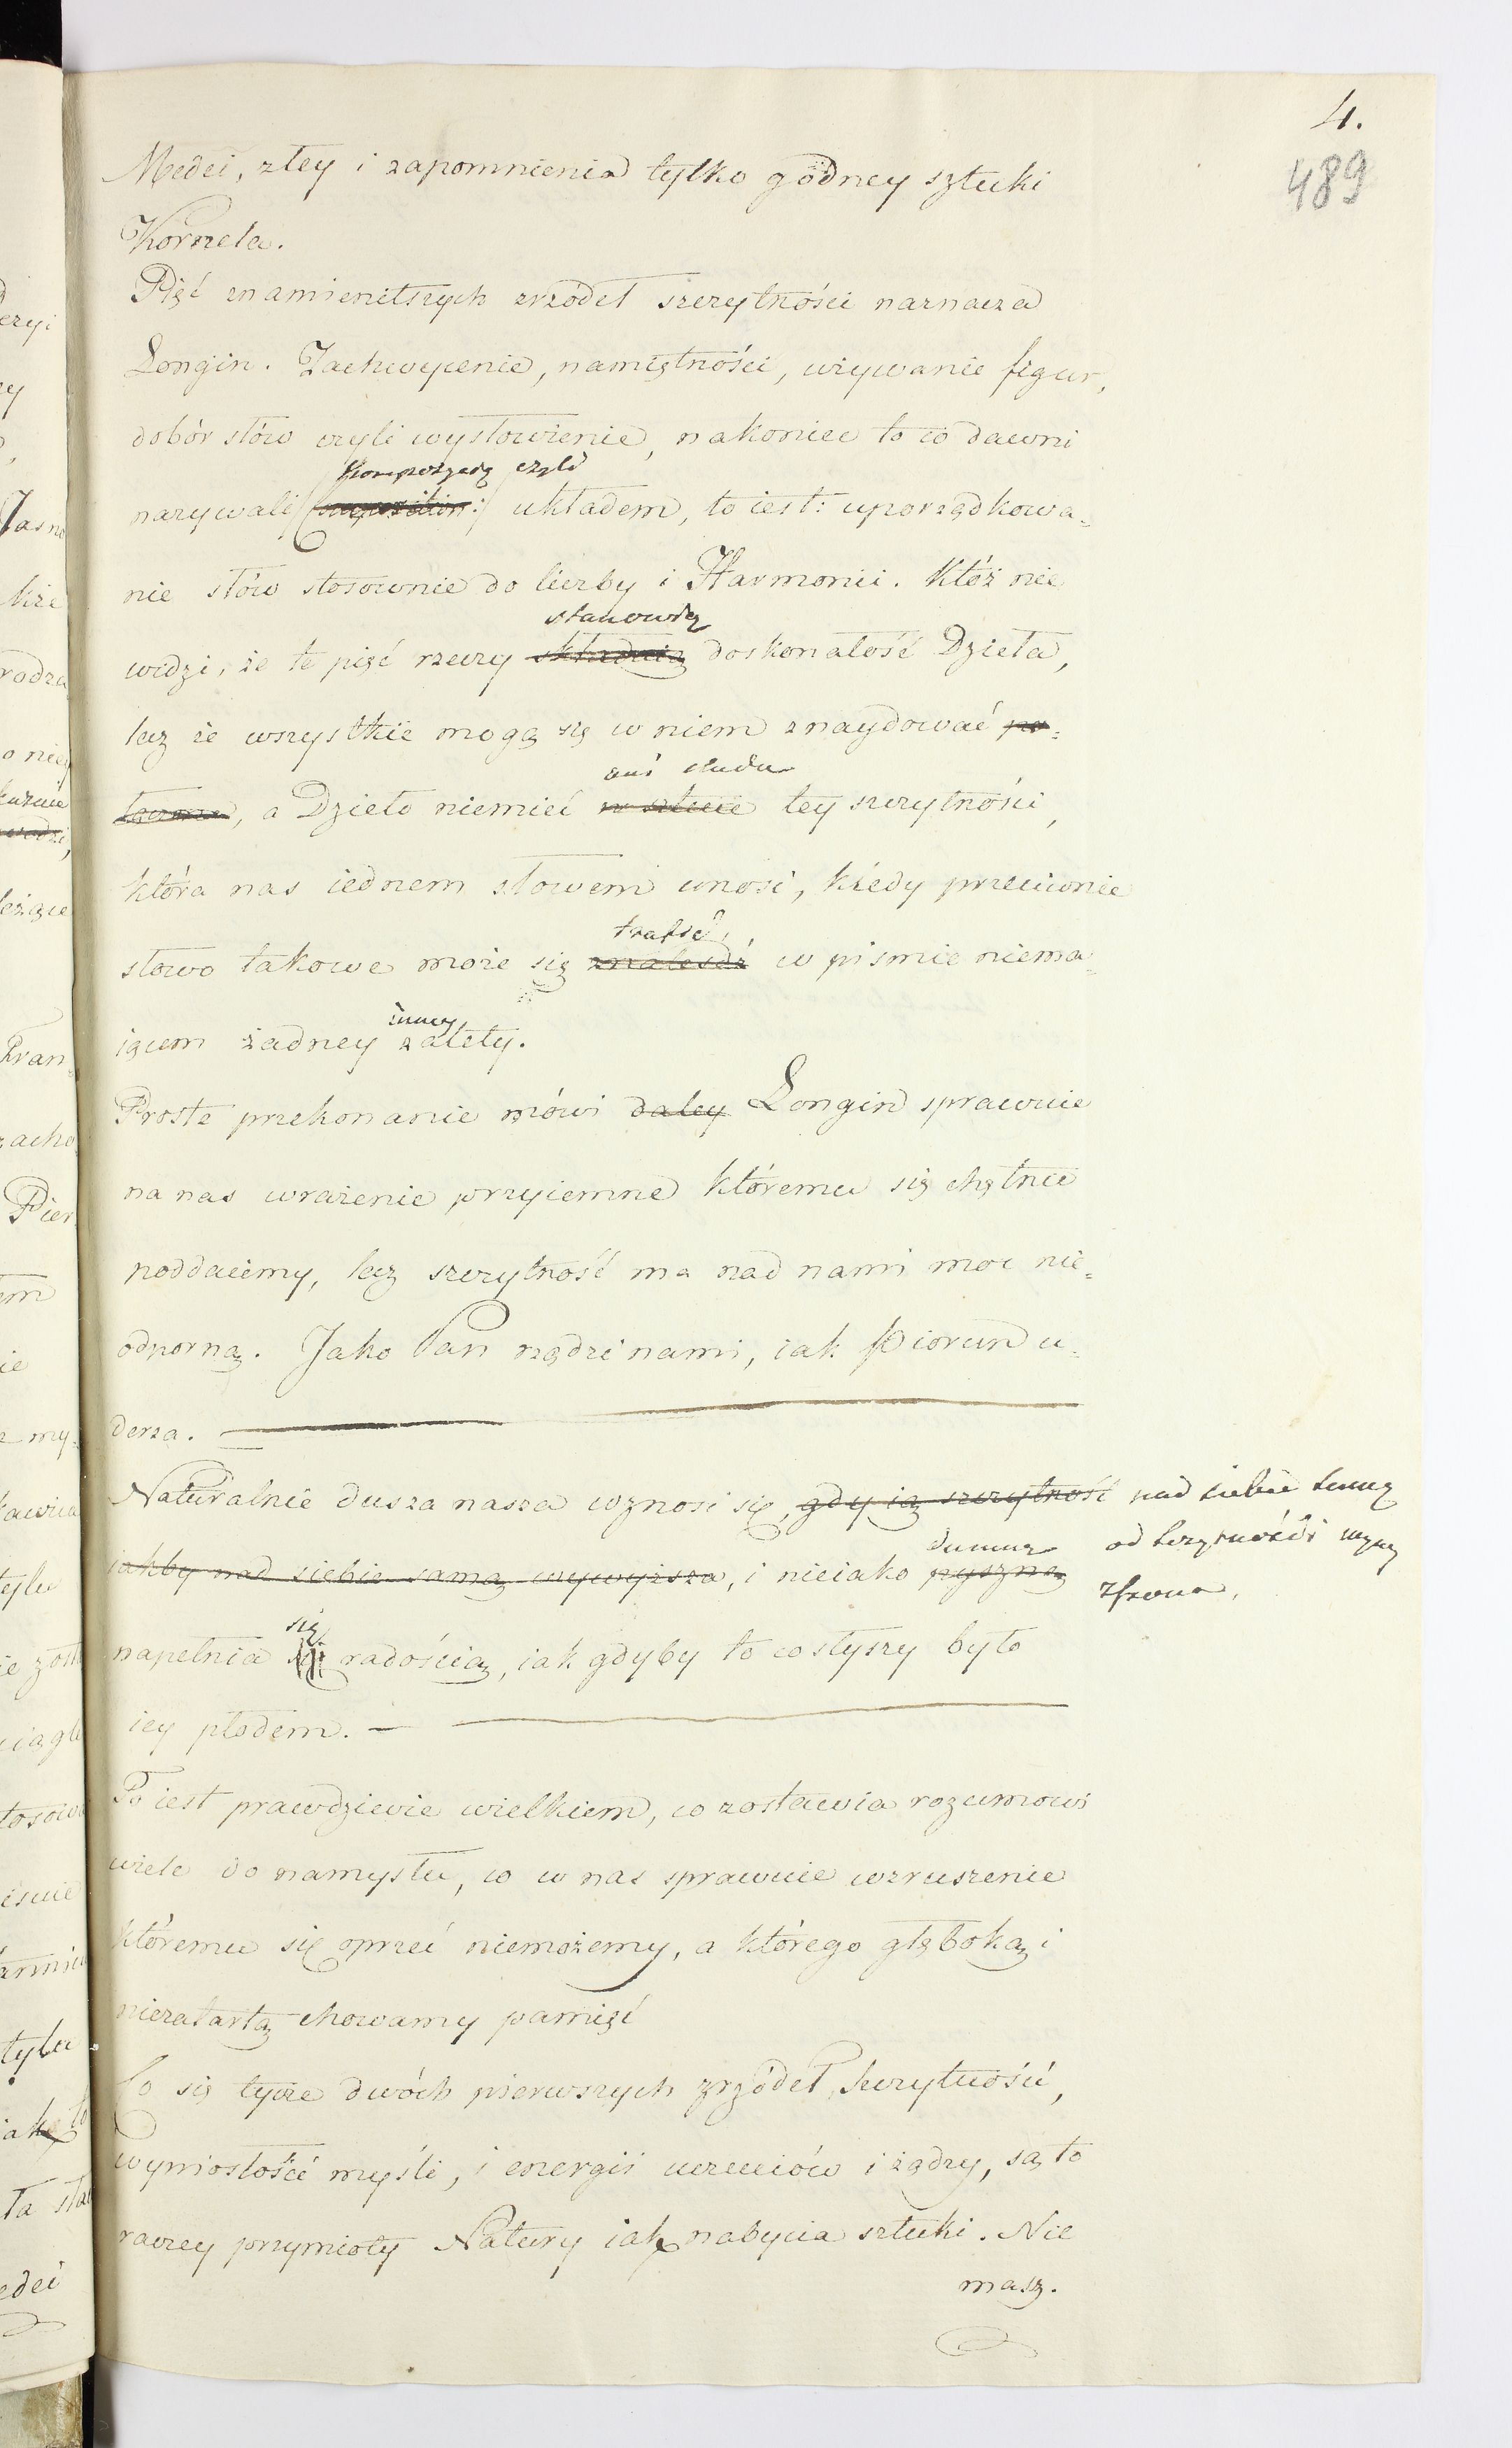 4.
489
Medei, złey i zapomnienia tylko godney sztuki
Kornela.
Pięć znamienitszych zrzodeł szczytności naznacza
Longin. Zachwycenie, namiętności, używanie figur,
dobór słów czyli wysłowienie, nakoniec to co dawni
kompozycyą czyli
nazywali układem, to iest: uporządkowa=
nie słów stosownie do liczby i Harmonii. Któż nie
stanowią
widzi, że te pięć rzeczy składaią doskonałość Dzieła,
lecz że wszystkie mogą się w niem znaydować po=
ani śladu
, a Dzieło niemieć tey szczytności,
która nas iednem słowem unosi, kiedy przeciwnie
trafić
słowo takowe może się znalesdź w pismie niema=
inney
iącem żadney zalety.
Proste przekonanie mówi daley Longin sprawuie
na nas wrażenie przyiemne któremu się chętnie
poddaiemy, lecz szczytność ma nad nami moc nie=
odporną. Jako Pan rządzi nami, iak Piorun u=
derza. —
Naturalnie dusza nasza wznosi się, gdy ią szczytność nad siebie samą
dumną od szczytności wynie
iakby nad siebie samą wywyższa, i nieiako pyszną
siona,
się
napełnia radością, iak gdyby to co słyszy było
iey płodem. —
To iest prawdziwie wielkiem, co zostawia rozumowi
wiele do namysłu, co w nas sprawuie wzruszenie
któremu się oprzeć niemożemy, a którego głęboką i
niezatartą chowamy pamięć
Co się tycze dwóch pierwszych zrzódeł szczytności,
wyniosłość myśli, i energii uczuciów i żądzy, są to
raczey przymioty Natury iak nabycia sztuki. Nie
masz.